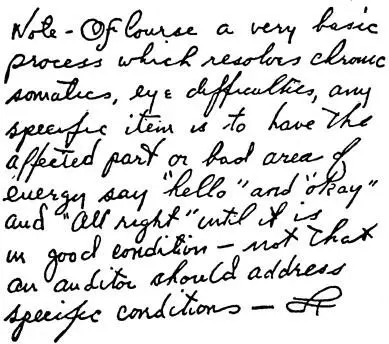 Note - Of Course a very basic
process which resolves chronic
somatics, eye difficulties, any
specific item is to have the
affected part or bad area of
energy say "hello" and "okay"
and "All right" until it is
in good condition - not that
an auditor should address
specific conditions -